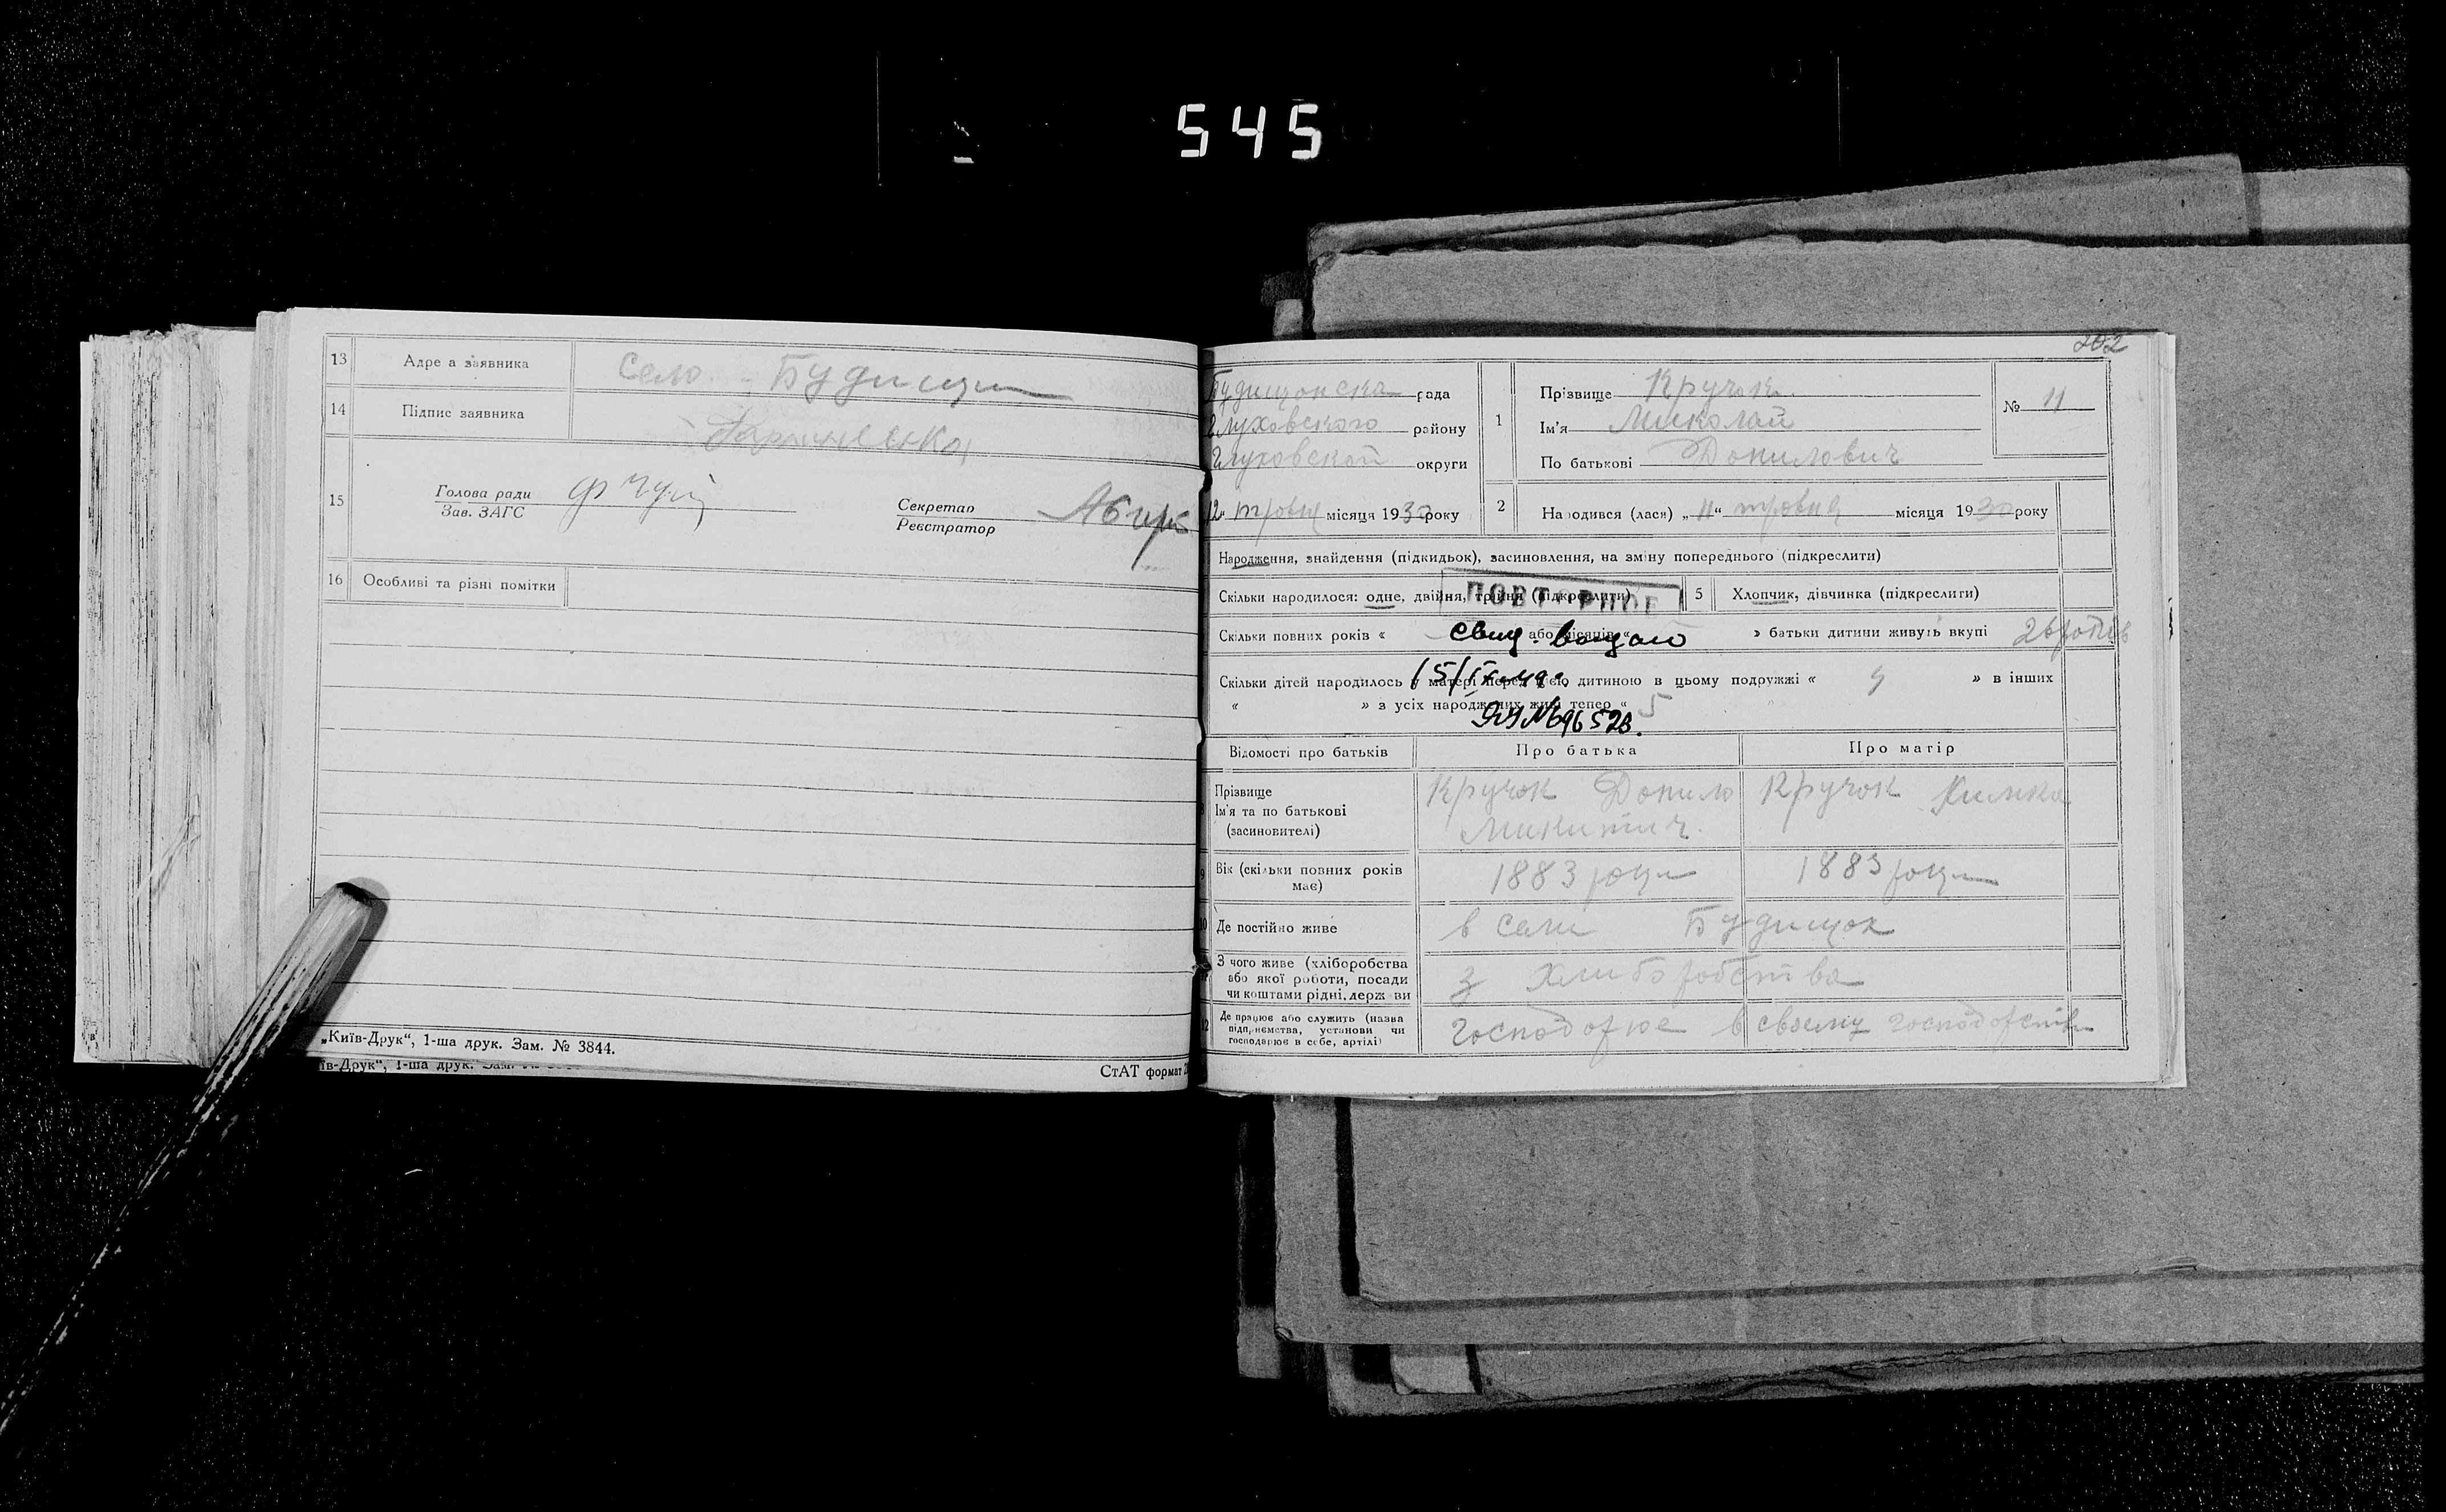 545
13 Адре а заявника Село Будищи
14 Підпис заявника
15 Голова ради
Зав. ЗАГС
Секретар
Реєстратор
16 Особливі та різні помітки
„Київ-Друк“, 1-ша друк. Зам. № 3844.
їв-Друк“, 1-ша друк.
СтАТ формат
202
Будищанска рада
Глуховского району
Глуховской округи
12 травня місяця 1930 року
1 Прізвище Кручок
Ім'я Миколай
По батькові Данилович
№ 11
2 Народився (лася) „11“ травня місяця 1930 року
Народження, знайдення (підкидьок), засиновлення, на зміну попереднього (підкреслити)
Скільки народилося: одне, двійня, трійня (підкреслити)
ПОВТ РНОЕ
5 Хлопчик, дівчинка (підкреслити)
Скільки повних років « або місяців « » батьки дитини живуть вкупі 26 ротків
свид. выдано
Скільки дітей народилось у матері перед цією дитиною в цьому подружжі « » в інших
« » з усіх народжених живі тепер « 5
№ 696528.
Відомості про батьків Про батька Про матір
8 Прізвище
Ім'я та по батькові
(засиновителі)
Кручок Данило
Микитич.
Кручок Химка
9 Вік (скільки повних років має)
1883 року 1883 року
10 Де постійно живе в сели Будищах
З чого живе (хліборобства
або якої роботи, посади
чи коштами рідні, держ ви
з хлиборобства
12 Де працює або служить (назва
підприємства, установи чи
господарює в себе, артілі)
господорюе в своему господорстви